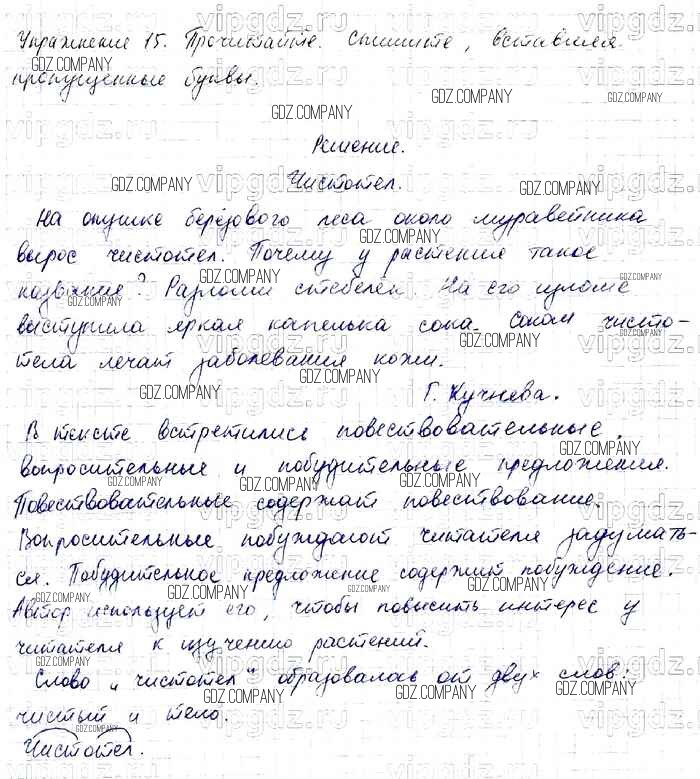 Упражнение 15. Прочитайте. Спишите, вставляя
пропущенные буквы.
Решение.
Чистотел.
На опушке берёзового леса около муравейника
вырос чистотел. Почему у растения такое
название? Разломи стебелек. На его изломе
выступила яркая капелька сока. Соком чисто-
тела лечат заболевания кожи.
Г. Кучнева.
В тексте встретились повествовательные,
вопросительные и побудительные предложения.
Повествовательные содержат повествование.
Вопросительные побуждают читателя задумать-
ся. Побудительное предложение содержит побуждение.
Автор использует его, чтобы повысить интерес у
читателя к изучению растений.
Слово „чистотел" образовалась от двух слов:
чистый и тело.
Чистотел.
vipgdz.ru
GDZ.COMPANY